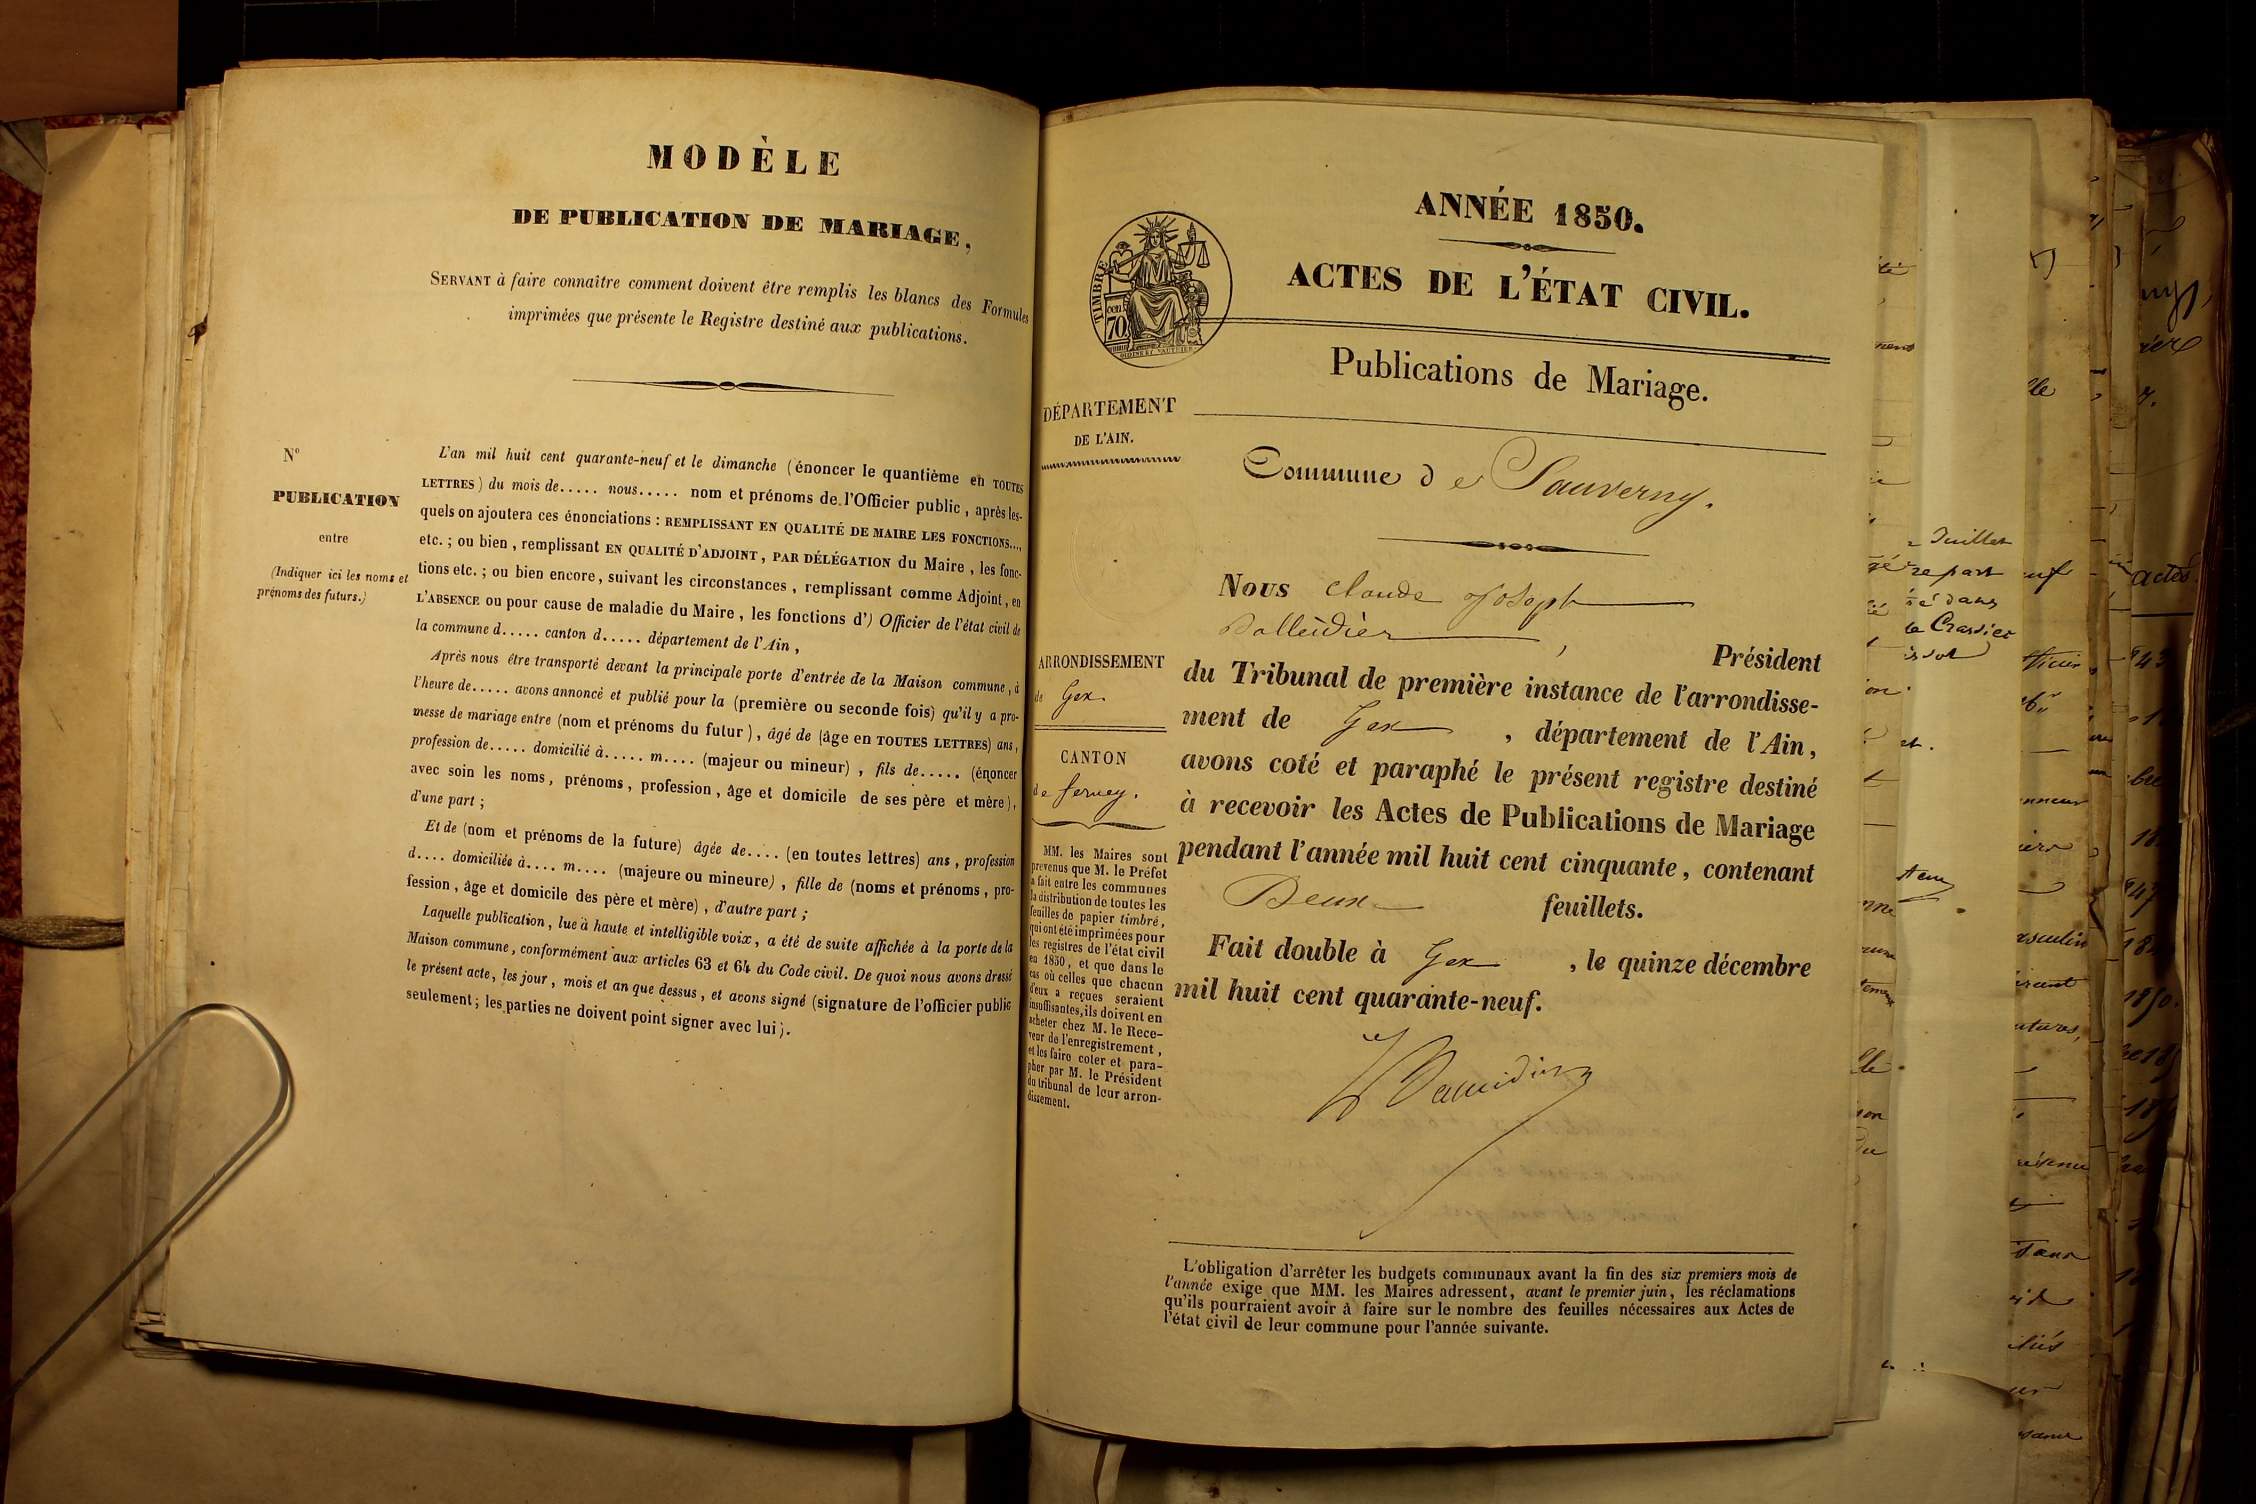 MODÈLE
DE PUBLICATION DE MARIAGE,
SERVANT à faire connaître comment doivent être remplis les blancs des Formules
imprimées que présente le Registre destiné aux publications.
N°
PUBLICATION
entre
(Indiquer ici les noms et
prénoms des futurs.)
L'an mil huit cent quarante-neuf et le dimanche (énoncer le quantième en TOUTES
LETTRES) du mois de..... nous..... nom et prénoms de l'Officier public, après les-
quels on ajoutera ces énonciations : REMPLISSANT EN QUALITÉ DE MAIRE LES FONCTIONS...,
etc. ; ou bien, remplissant EN QUALITÉ D'ADJOINT, PAR DÉLÉGATION du Maire, les fonc-
tions etc. ; ou bien encore, suivant les circonstances, remplissant comme Adjoint, en
L'ABSENCE ou pour cause de maladie du Maire, les fonctions d') Officier de l'état civil de
la commune d..... canton d..... département de l'Ain,
Après nous être transporté devant la principale porte d'entrée de la Maison commune, à
l'heure de..... avons annoncé et publié pour la (première ou seconde fois) qu'il y a pro-
messe de mariage entre (nom et prénoms du futur), âgé de (âge en TOUTES LETTRES) ans,
profession de..... domicilié à..... m.... (majeur ou mineur), fils de..... (énoncer
avec soin les noms, prénoms, profession, âge et domicile de ses père et mère),
d'une part ;
Et de (nom et prénoms de la future) âgée de.... (en toutes lettres) ans, profession
d.... domiciliée à.... m.... (majeure ou mineure), fille de (noms et prénoms, pro-
fession, âge et domicile des père et mère), d'autre part ;
Laquelle publication, lue à haute et intelligible voix, a été de suite affichée à la porte de la
Maison commune, conformément aux articles 63 et 64 du Code civil. De quoi nous avons dressé
le présent acte, les jour, mois et an que dessus, et avons signé (signature de l'officier public
seulement ; les parties ne doivent point signer avec lui).
ANNÉE 1850.
TIMBRE
cen.
70
ACTES DE L'ÉTAT CIVIL.
Publications de Mariage.
DÉPARTEMENT
DE L'AIN.
Commune de Sauverny.
Nous Claude Joseph
, Président
du Tribunal de première instance de l'arrondisse-
ment de Gex, département de l'Ain,
avons coté et paraphé le présent registre destiné
à recevoir les Actes de Publications de Mariage
pendant l'année mil huit cent cinquante, contenant
Deux feuillets.
Fait double à Gex, le quinze décembre
mil huit cent quarante-neuf.
ARRONDISSEMENT
de Gex.
CANTON
de ferney.
MM. les Maires sont
prévenus que M. le Préfet
a fait entre les communes
la distribution de toutes les
feuilles de papier timbré,
qui ont été imprimées pour
les registres de l'état civil
en 1850, et que dans le
cas où celles que chacun
d'eux a reçues seraient
insuffisantes, ils doivent en
acheter chez M. le Rece-
veur de l'enregistrement,
et les faire coter et para-
pher par M. le Président
du tribunal de leur arron-
dissement.
L'obligation d'arrêter les budgets communaux avant la fin des six premiers mois de
l'année exige que MM. les Maires adressent, avant le premier juin, les réclamations
qu'ils pourraient avoir à faire sur le nombre des feuilles nécessaires aux Actes de
l'état civil de leur commune pour l'année suivante.
Juillet
actes
1850.